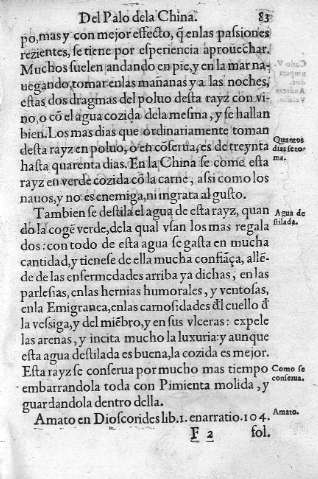 Del Palo dela China. 83
po, mas y con mejor effecto, q̃ en las passiones
rezientes, se tiene por esperiencia aprouechar.
Muchos suelen andando en pie, y en la mar na-
uegando, tomar en las mañanas y a las noches,
estas dos dragmas del poluo desta rayz con vi-
no, o cõ el agua cozida dela mesma, y se hallan
bien. Los mas dias que ordinariamente toman
desta rayz en poluo, o en cõserua, es de treynta
hasta quarenta dias. En la China se come esta
rayz en verde cozida cõ la carne, assi como los
nauos, y no es enemiga, ni ingrata al gusto.
Quantos
dias se to-
ma.
Tambien se destila el agua de esta rayz, quan
do la cogẽ verde, dela qual vsan los mas regala
dos: con todo de esta agua se gasta en mucha
cantidad, y tienese de ella mucha confiãça, allẽ-
de de las enfermedades arriba ya dichas, en las
parlesias, en las hernias humorales, y ventosas,
en la Emigranea, en las carnosidades d̃l cuello d̃
la vessiga, y du miẽbro, y en sus vlceras: expele
las arenas, y incita mucho la luxuria: y aunque
esta agua destilada es buena, la cozida es mejor.
Esta rayz se conserua por mucho mas tiempo
embarrandola toda con Pimienta molida, y
guardandola dentro della.
Agua de
stilada.
Como se
conserua.
Amato en Dioscorides lib. 1. enarratio. 104.
Amato.
F 2 fol.